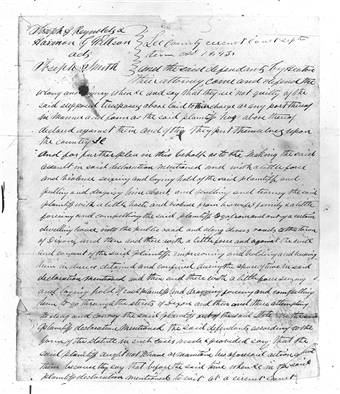 Joseph H Reynolds &
Harmon T Wilson
ads
Joseph Smith
Lee County circuit Court Sept
term AD 1843
And the said defendants by
their attorney come and defend the
wrong and injury when &c and say that they are not guilty of the
said supposed trespasses above laid to their charge or any part thereof
in manner and form as the said plaintiff has above thereof
declared against them and of this they put themselves upon
the country &c
And for further plea in this behalf as to the making the said
assault in said declaration mentioned and with a little force
and violence seizing and laying hold of the said plaintiff and
pulling and dragging him about and pulling and tearing the said
plaintiff with a little haste and violence from his wife & family & a little
forcing and compelling the said plaintiff to go from and out of a certain
dwelling house into the public road and along divers roads to the town
of Dixon and then and there with a little force and against the will
and consent of the said plaintiff imprisoning and holding and keeping
him in duress detained and confined during the space of time in said
declaration mentioned and then and there with a little force seizing
and laying hold of said plaintiff and dragging forcing and compelling
him to go through the streets of Dixon and then and there attempting
to drag and convey the said plaintiff out of this said State in the said
plaintiffs declaration mentioned the said defendants according to the
form of the statute in such cases made & provided say that the
said plaintiff ought not to have or maintain his aforesaid action
them because they say that before the said time when &c in the said
plaintiffs declaration mentioned to wit at a circuit Court